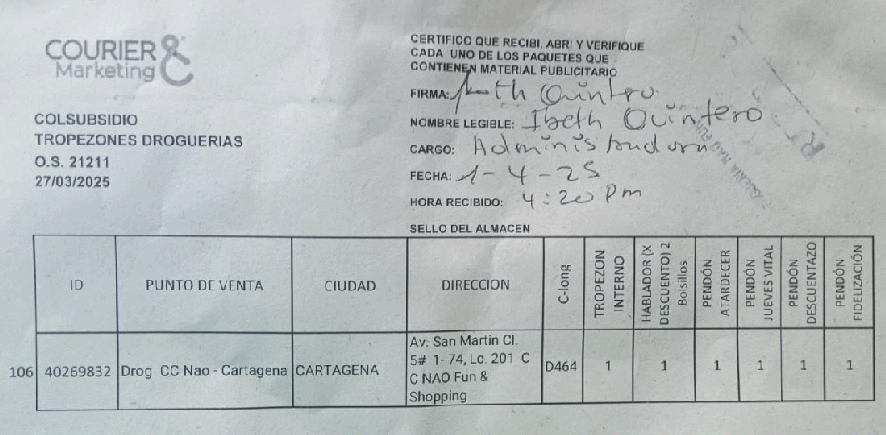 COURIER
Marketing
COLSUBSIDIO
TROPEZONES DROGUERIAS
O.S. 21211
27/03/2025
CERTIFICO QUE RECIBI, ABRI Y VERIFIQUE
CADA UNO DE LOS PAQUETES QUE
CONTIENEN MATERIAL PUBLICITARIO
FIRMA: Quintero
NOMBRE LEGIBLE: Ibeth Quintero
CARGO: Administradora
FECHA: 1-4-25
HORA RECIBIDO: 4:20 Pm
SELLO DEL ALMACEN
ID PUNTO DE VENTA CIUDAD DIRECCION C-long TROPEZON INTERNO HABLADOR (X DESCUENTO) 2 Bolsillos PENDÓN ATARDECER PENDÓN JUEVES VITAL PENDÓN DESCUENTAZO PENDÓN FIDELIZACIÓN
106 40269832 Drog CC Nao - Cartagena CARTAGENA Av. San Martin Cl. 5# 1-74, Lc. 201 C C NAO Fun & Shopping D464 1 1 1 1 1 1